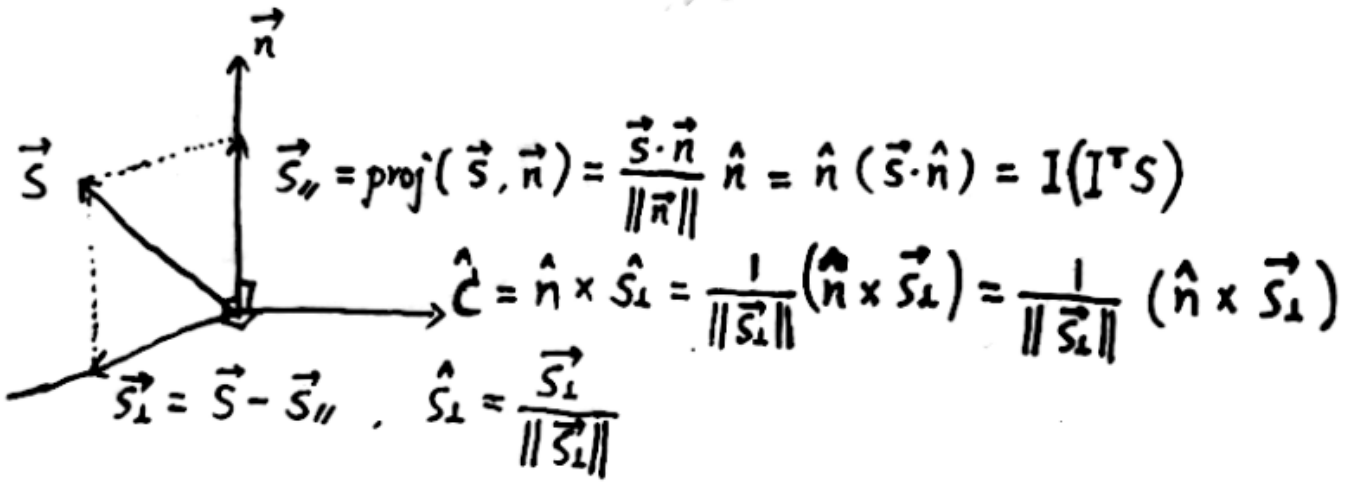 n⃗
S⃗
S⃗∥ = proj(S⃗, n⃗) = (S⃗·n⃗)/‖n⃗‖ n̂ = n̂(S⃗·n̂) = I(IᵀS)
Ĉ = n̂ × Ŝ⊥ = 1/‖S⃗⊥‖ (n̂ × S⃗⊥) = 1/‖S⃗⊥‖ (n̂ × S⃗⊥)
S⃗⊥ = S⃗ - S⃗∥ , Ŝ⊥ = S⃗⊥/‖S⃗⊥‖